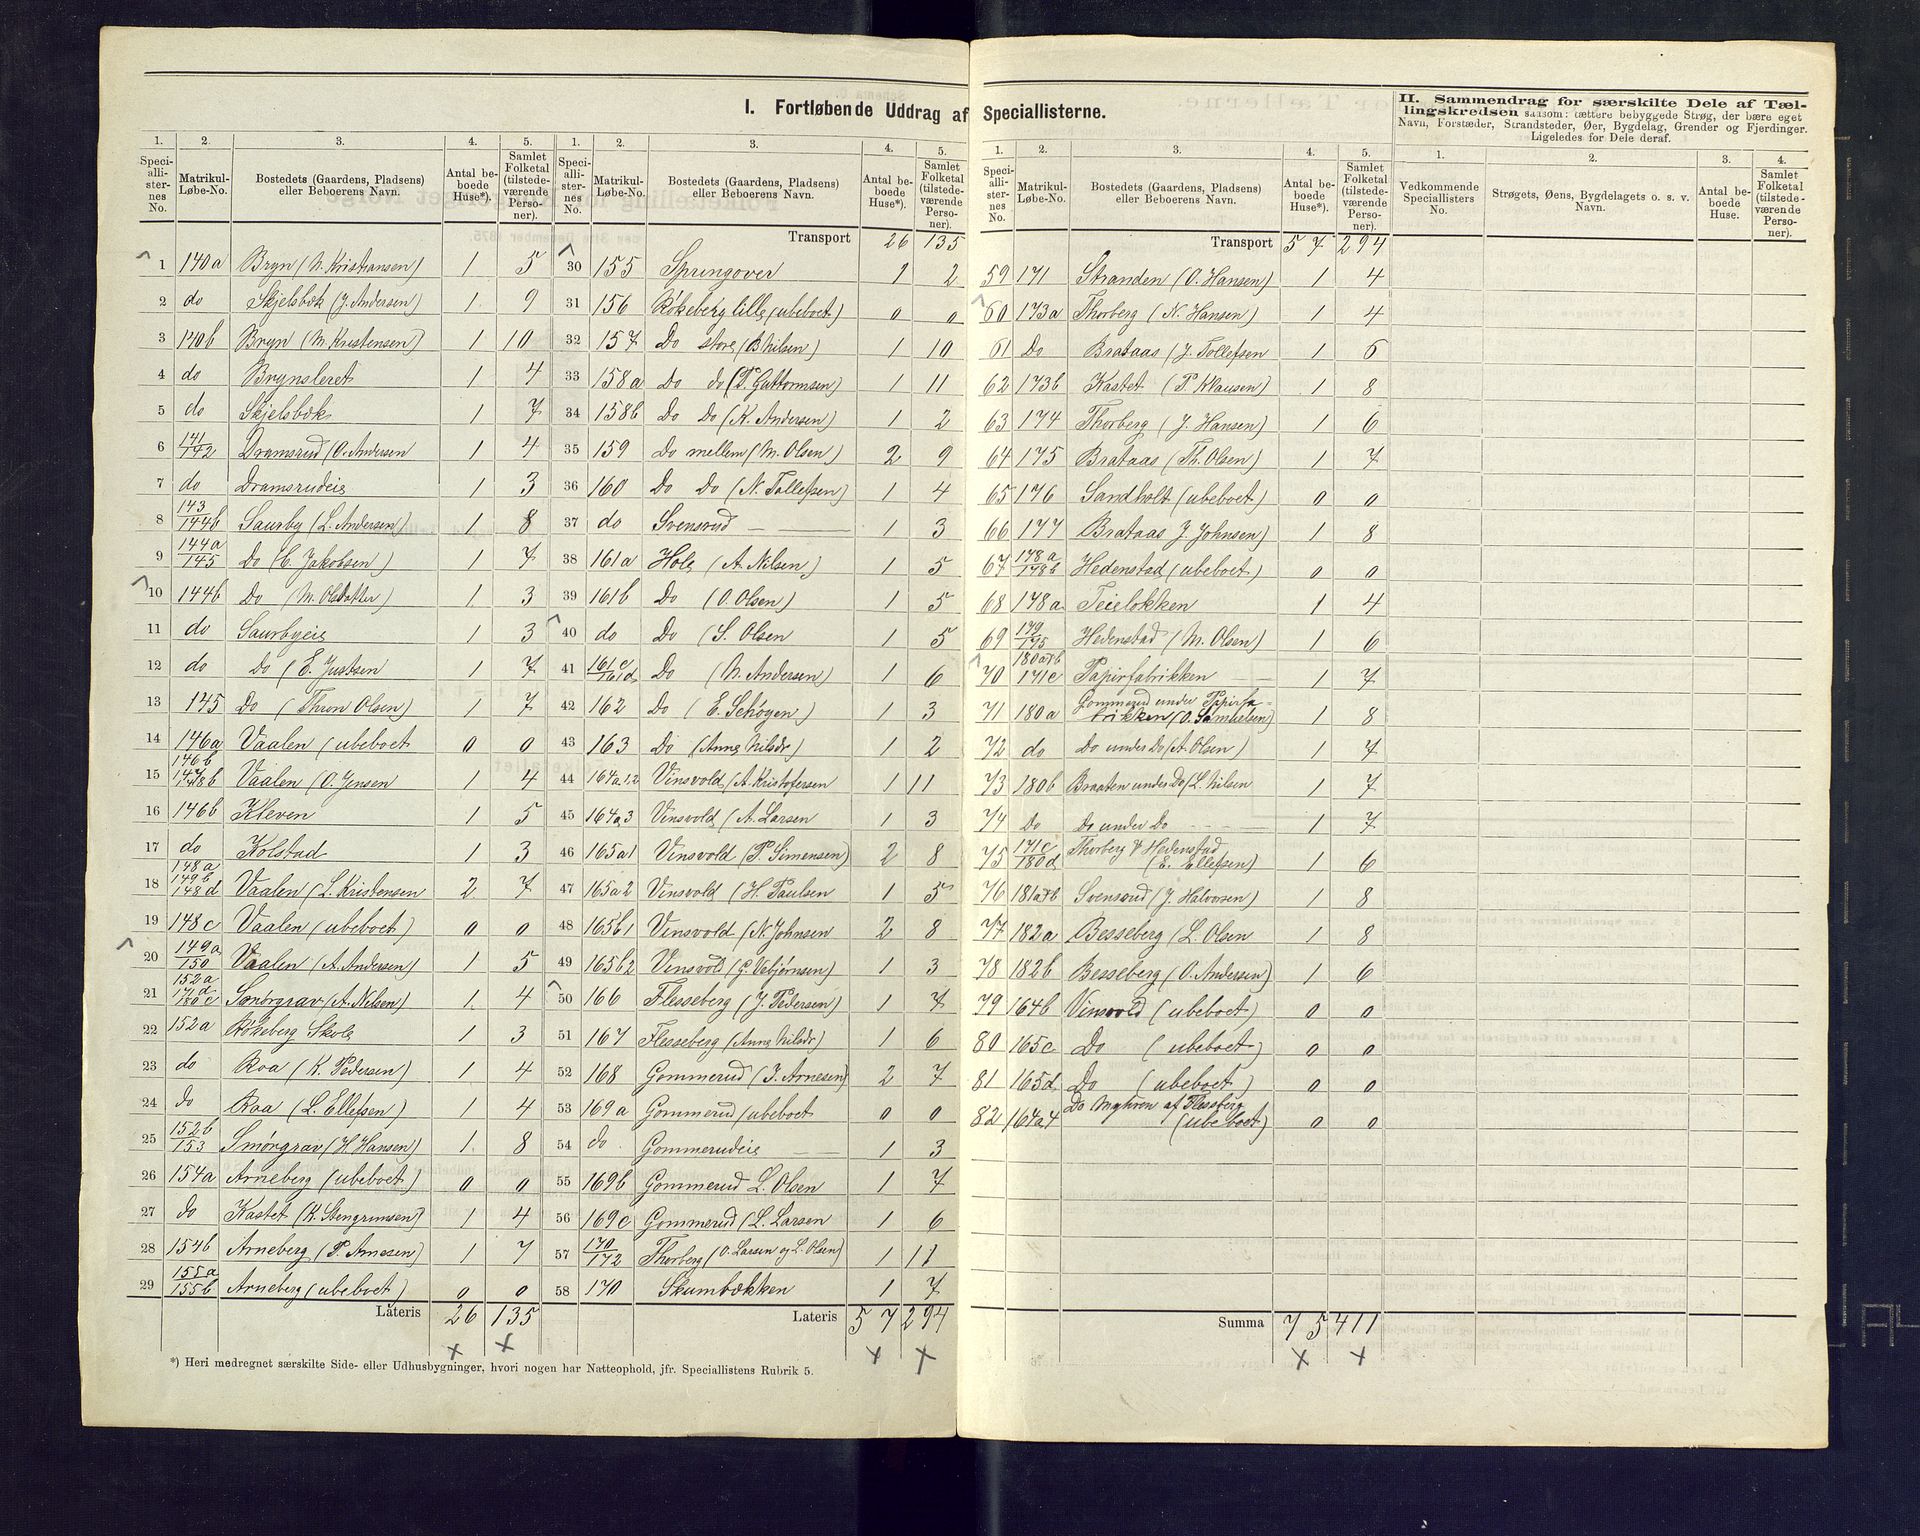 I. Fortløbende Uddrag af Speciallisterne.
II. Sammendrag for særskilte Dele af Tæl-
lingskredsen saasom: tættere bebyggede Strøg, der bære eget
Navn, Forstæder, Strandsteder, Øer, Bygdelag, Grender og Fjerdinger.
Ligeledes for Dele deraf.
1. 2. 3. 4. 5.
Speci-allister-nes No. Matrikul-Løbe-No. Bostedets (Gaardens, Pladsens) eller Beboerens Navn. Antal be-boede Huse*). Samlet Folketal (tilstede-værende Perso-ner).
1 140a Bryn (N. Kristiansen) 1 5
2 do Skjelsbæk (J. Andersen) 1 9
3 140b Bryn (M. Kristensen) 1 10
4 do Brynsleret 1 4
5 do Skjelsbæk 1 7
6 141/142 Dramsrud (O. Andersen 1 4
7 do Dramsrudeie 1 3
8 143/144b Saurby (L. Andersen) 1 8
9 144a/145 Do (E. Jakobsen) 1 7
10 144b Do (M. Olsdatter) 1 3
11 do Saurbyeie 1 3
12 do Do (E. Justsen 1 7
13 145 Do (Thron Olsen) 1 7
14 146a Vaalen (ubeboet 0 0
15 146b 147/148b Vaalen (O. Jensen 1 4
16 146b Kleven 1 5
17 do Kolstad 1 3
18 148a 149b/148d Vaalen (L. Kristensen 2 7
19 148c Vaalen (ubeboet) 0 0
20 149a/150 Vaalen (A. Andersen) 1 5
21 152a 171d/180c Smörgrav (A. Nelsen) 1 4
22 152a Rökeberg Skole 1 3
23 do Roa (K. Pedersen) 1 4
24 do Roa (L. Ellefsen) 1 4
25 152b/153 Smørgrav (H. Hansen) 1 8
26 154a Arneberg (ubeboet) 0 0
27 do Kastet (K. Stengrimsen) 1 4
28 154b Arneberg (P. Arnesen) 1 7
29 155a/155b Arneberg (ubeboet) 0 0
Lateris 26 135
*) Heri medregnet særskilte Side- eller Udhusbygninger, hvori nogen har Natteophold, jfr. Speciallistens Rubrik 5.
1. 2. 3. 4. 5.
Speci-allister-nes No. Matrikul-Løbe-No. Bostedets (Gaardens, Pladsens) eller Beboerens Navn. Antal be-boede Huse*). Samlet Folketal (tilstede-værende Perso-ner).
Transport 26 135
30 155 Springover 1 2
31 156 Rökeberg lille (ubeboet) 0 0
32 157 Do store (B Nilsen) 1 10
33 158a Do do (P. Guttormsen) 1 11
34 158b Do Do (K. Andersen) 1 2
35 159 Do mellem (M. Olsen) 2 9
36 160 Do Do (N. Tollefsen) 1 4
37 do Svensrud 1 3
38 161a Hole (A. Nilsen) 1 5
39 161b Do (O. Olsen) 1 5
40 do Do (S. Olsen 1 5
41 161c/161d Do (N. Andersen) 1 6
42 162 Do (E. Schögen) 1 3
43 163 Do (Anne Nilsdr) 1 2
44 164a1.2 Vinsvold (A. Kristofersen 1 11
45 164a3 Vinsvold (A. Larsen 1 3
46 165a1 Vinsvold (P. Simensen) 2 8
47 165a2 Vinsvold (H. Paulsen 1 5
48 165b1 Vinsvold (N. Johnsen 2 8
49 165b2 Vinsvold (G. Vebjörnsen) 1 3
50 166 Flesseberg (J. Pedersen) 1 7
51 167 Flesseberg (Anne Nilsdr) 1 6
52 168 Gommerud (J. Arnesen) 2 7
53 169a Gommerud (ubeboet 0 0
54 do Gommerudeie 1 3
55 169b Gommerud L. Olsen 1 7
56 169c Gommerud (L. Larsen 1 6
57 170/172 Thorberg (O. Larsen og L. Olsen) 1 11
58 170 Skumbækken 1 7
Lateris 57 294
1. 2. 3. 4. 5.
Speci-allister-nes No. Matrikul-Løbe-No. Bostedets (Gaardens, Pladsens) eller Beboerens Navn. Antal be-boede Huse*). Samlet Folketal (tilstede-værende Perso-ner).
Transport 57 294
59 171 Stranden (O. Hansen) 1 4
60 173a Thorberg (N. Hansen) 1 4
61 Do Brataas (J. Tollefsen 1 6
62 173b Kastet (P Klausen) 1 8
63 174 Thorberg (J. Hansen) 1 6
64 175 Brataas (Th. Olsen) 1 7
65 176 Sandholt (ubeboet) 0 0
66 177 Brataas J Johnsen) 1 8
67 178a/178b Hedenstad (ubeboet) 0 0
68 178a Teielökken 1 4
69 179/175 Hedenstad (M. Olsen) 1 6
70 180a+b 171c Papirfabrikken 1 7
71 180a Gommerud under Papirfa-
brikken (O. Samuelsen) 1 8
72 do Do under Do (A. Olsen) 1 7
73 180b Braaten under Do (L. Nilsen 1 7
74 Do Do under Do 1 7
75 171c/180d Thorberg & Hedenstad
(E. Ellefsen) 1 6
76 181a+b Svensrud (J. Halvorsen) 1 8
77 182a Besseberg (L. Olsen 1 8
78 182b Besseberg (O. Andersen) 1 6
79 164b Vinsvold (ubeboet) 0 0
80 165c Do (ubeboet) 0 0
81 165d Do (ubeboet) 0 0
82 164a4 Do Myhren af Flesberg
(ubeboet) 0 0
Summa 75 411
1. 2. 3. 4.
Vedkommende Speciallisters No. Strøgets, Øens, Bygdelagets o. s. v. Navn. Antal be-boede Huse. Samlet Folketal (tilstede-værende Perso-ner).